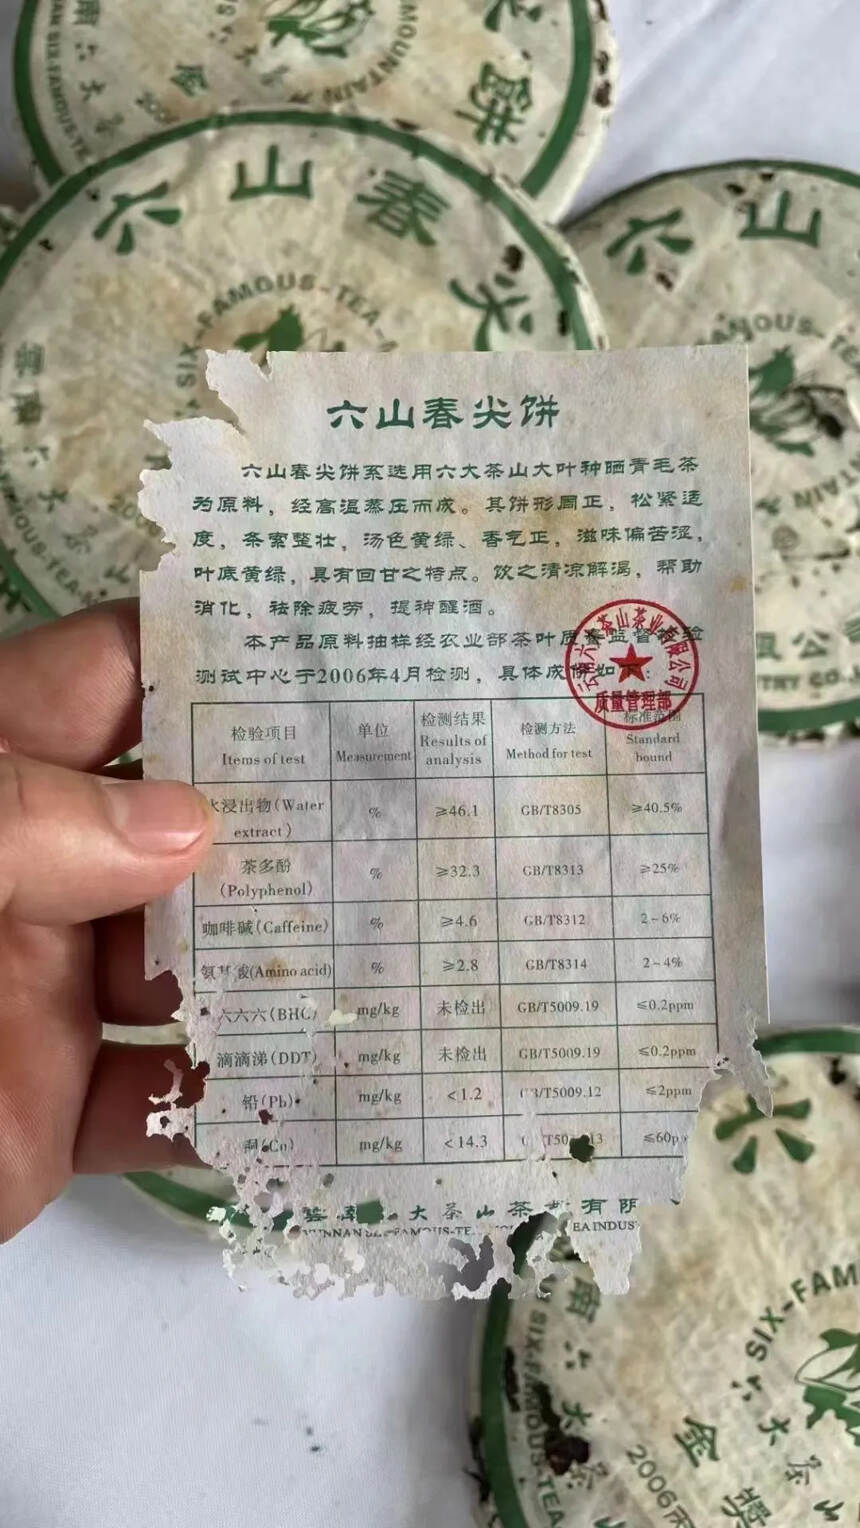 六山春尖
SIX-FAMOUS-TEA-
六山
六山春尖饼
六山春尖饼系选用六大茶山大叶种晒青毛茶
为原料，经高温蒸压而成。其饼形周正，松紧适
度，条索整壮，汤色黄绿、香气正，滋味偏苦涩，
叶底黄绿，具有回甘之特点。饮之清凉解渴，帮助
消化，祛除疲劳，提神醒酒。
本产品原料抽样经农业部茶叶质量监督检验
测试中心于2006年4月检测，具体成份如下：
云南六大茶山茶业有限公司
质量管理部
检验项目 单位 检测结果 检测方法 标准范围
Items of test Measurement Results of analysis Method for test Standard bound
水浸出物(Water extract) % ≥46.1 GB/T8305 ≥40.5%
茶多酚(Polyphenol) % ≥32.3 GB/T8313 ≥25%
咖啡碱(Caffeine) % ≥4.6 GB/T8312 2~6%
氨基酸(Amino acid) % ≥2.8 GB/T8314 2~4%
六六六(BHC) mg/kg 未检出 GB/T5009.19 ≤0.2ppm
滴滴涕(DDT) mg/kg 未检出 GB/T5009.19 ≤0.2ppm
铅(Pb) mg/kg <1.2 /T5009.12 ≤2ppm
铜(Cu) mg/kg <14.3 ≤60p
大茶山茶 有限
YUNNAN SIX-FAMOUS-TE EA INDUS
六
SIX-FAM
南六大茶
六大茶山
金奖
2006